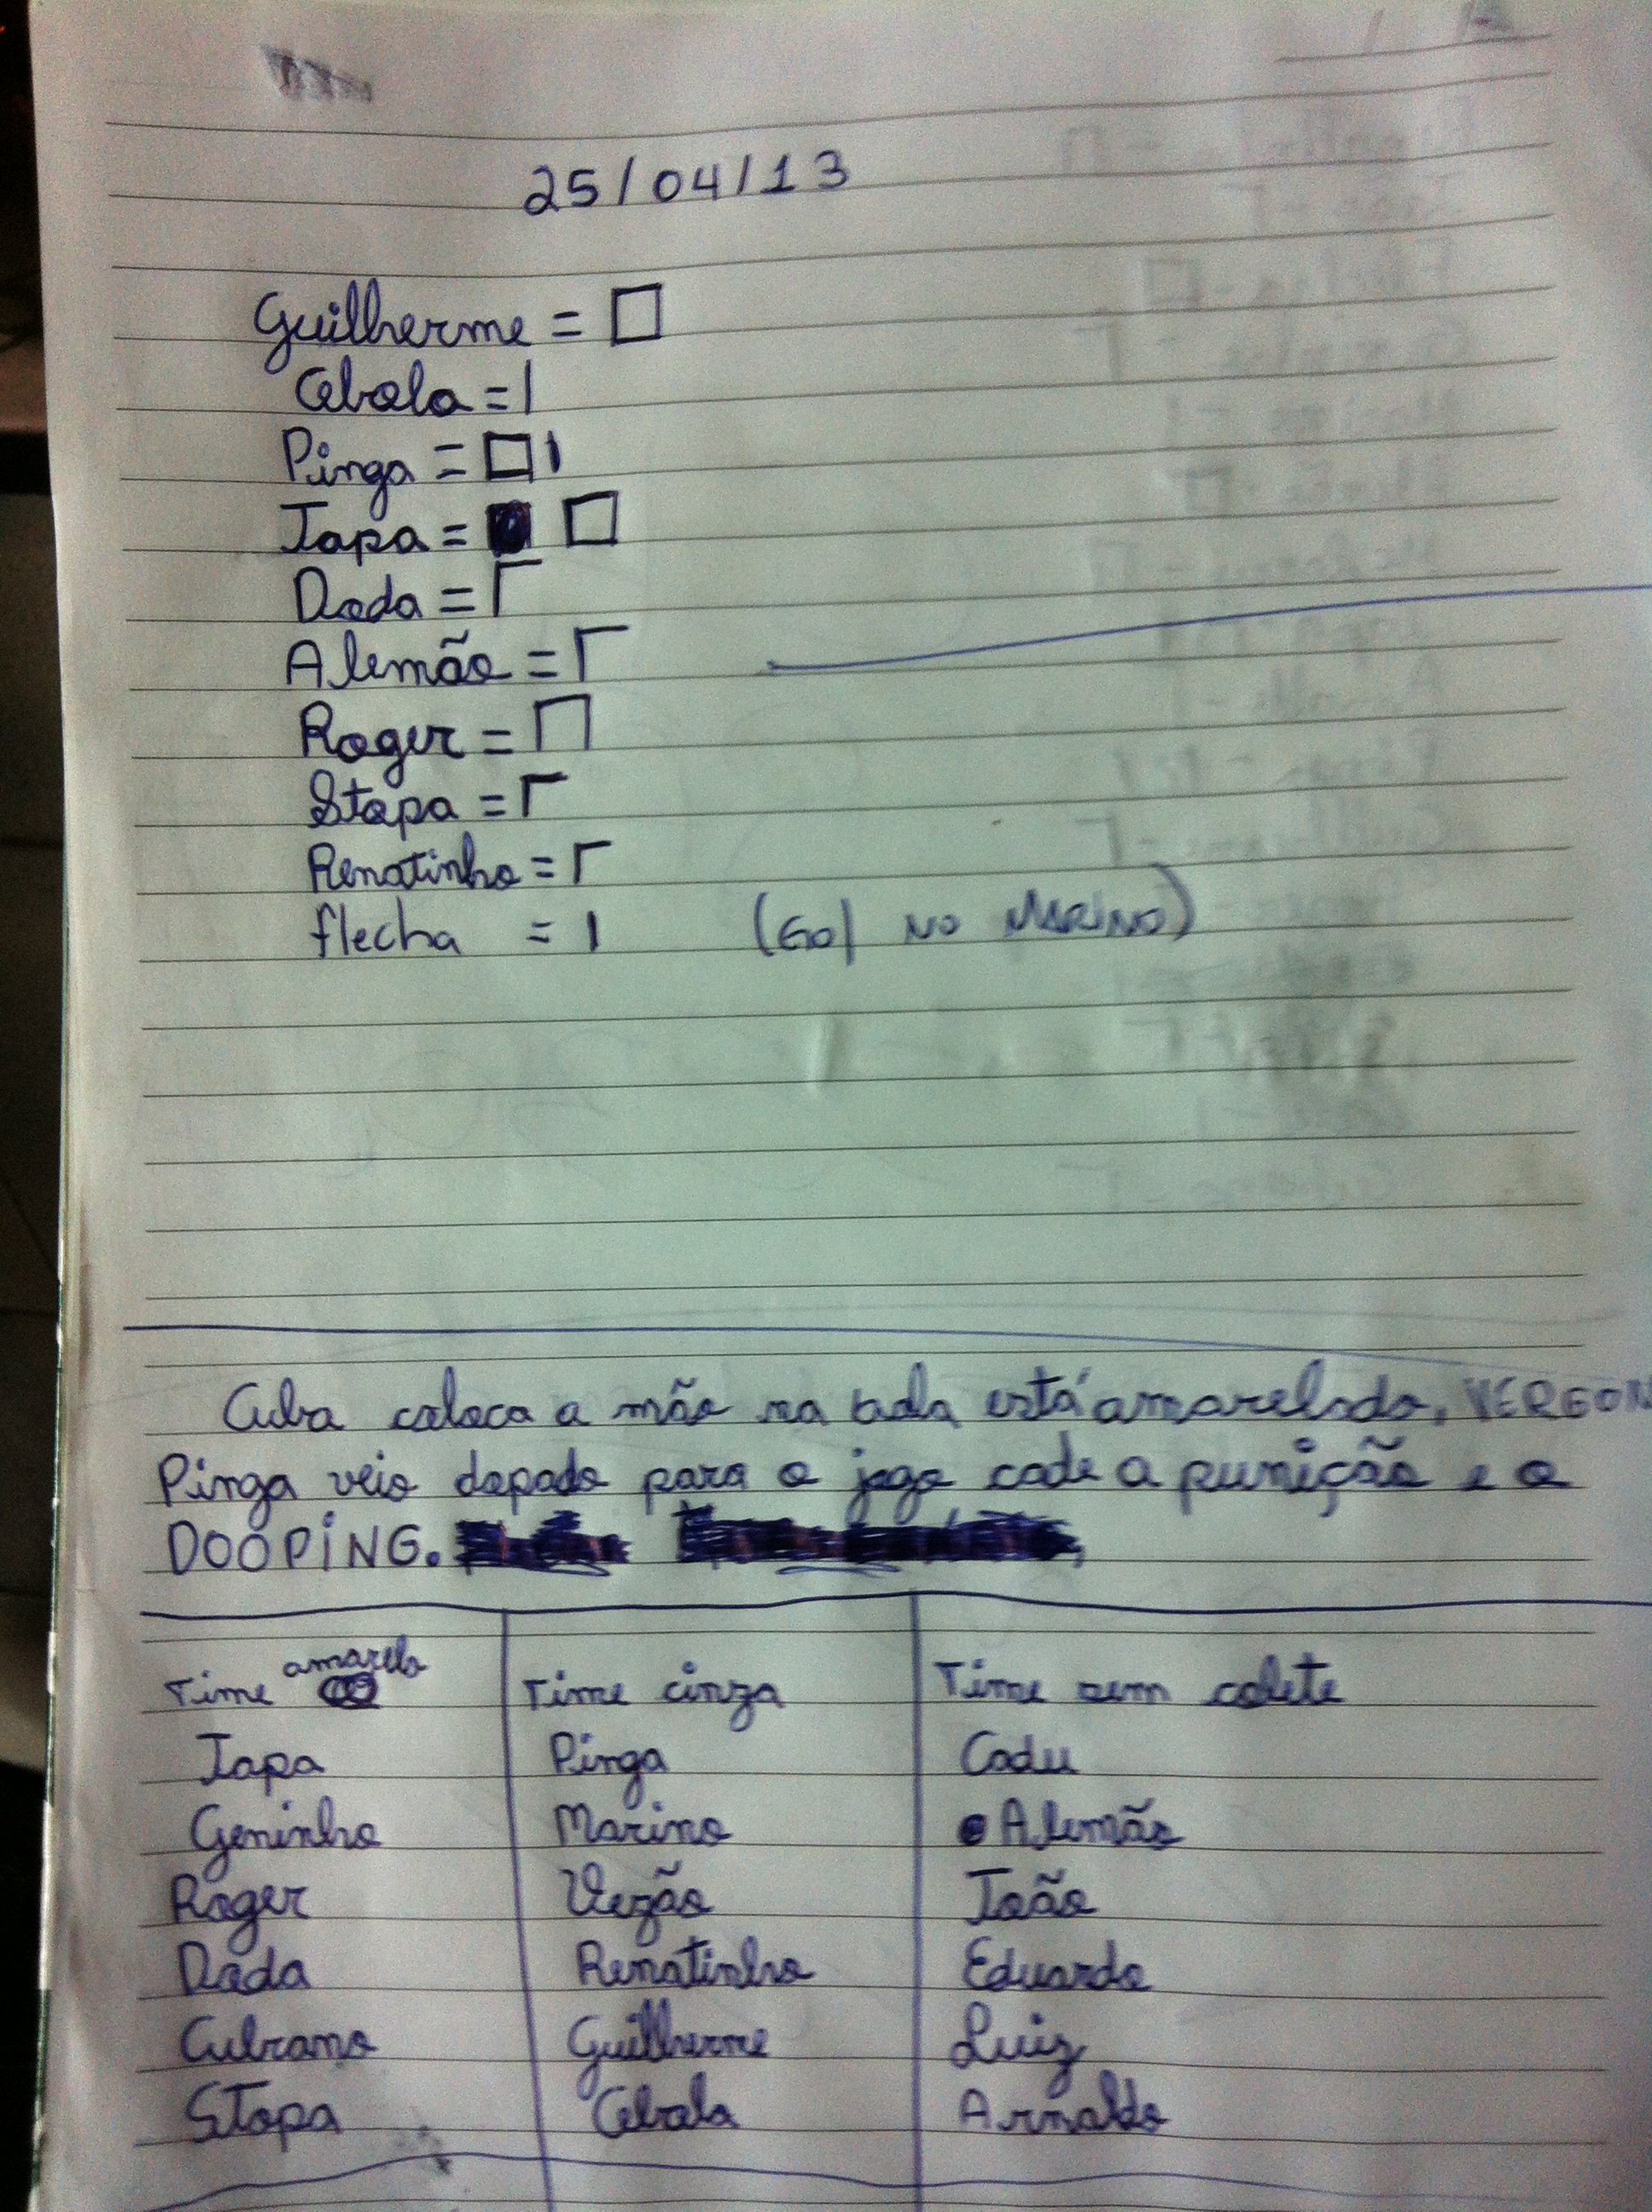 25/04/13
Guilherme = □
Cebola = |
Pinga = □|
Japa = □
Dada = Γ
Alemão = Γ
Roger = Π
Stopa = Γ
Renatinho = Γ
flecha = | (Gol no MARINO)
Cuba coloca a mão na bola está amarelado, VERGON
Pinga veio dopado para o jogo cade a punição e o
DOOPING.
Time amarelo | Time cinza | Time sem colete
Japa | Pinga | Cadu
Geninho | Marino | Alemão
Roger | Vezão | João
Dada | Renatinho | Eduardo
Cubano | Guilherme | Luiz
Stopa | Cebola | Arnaldo